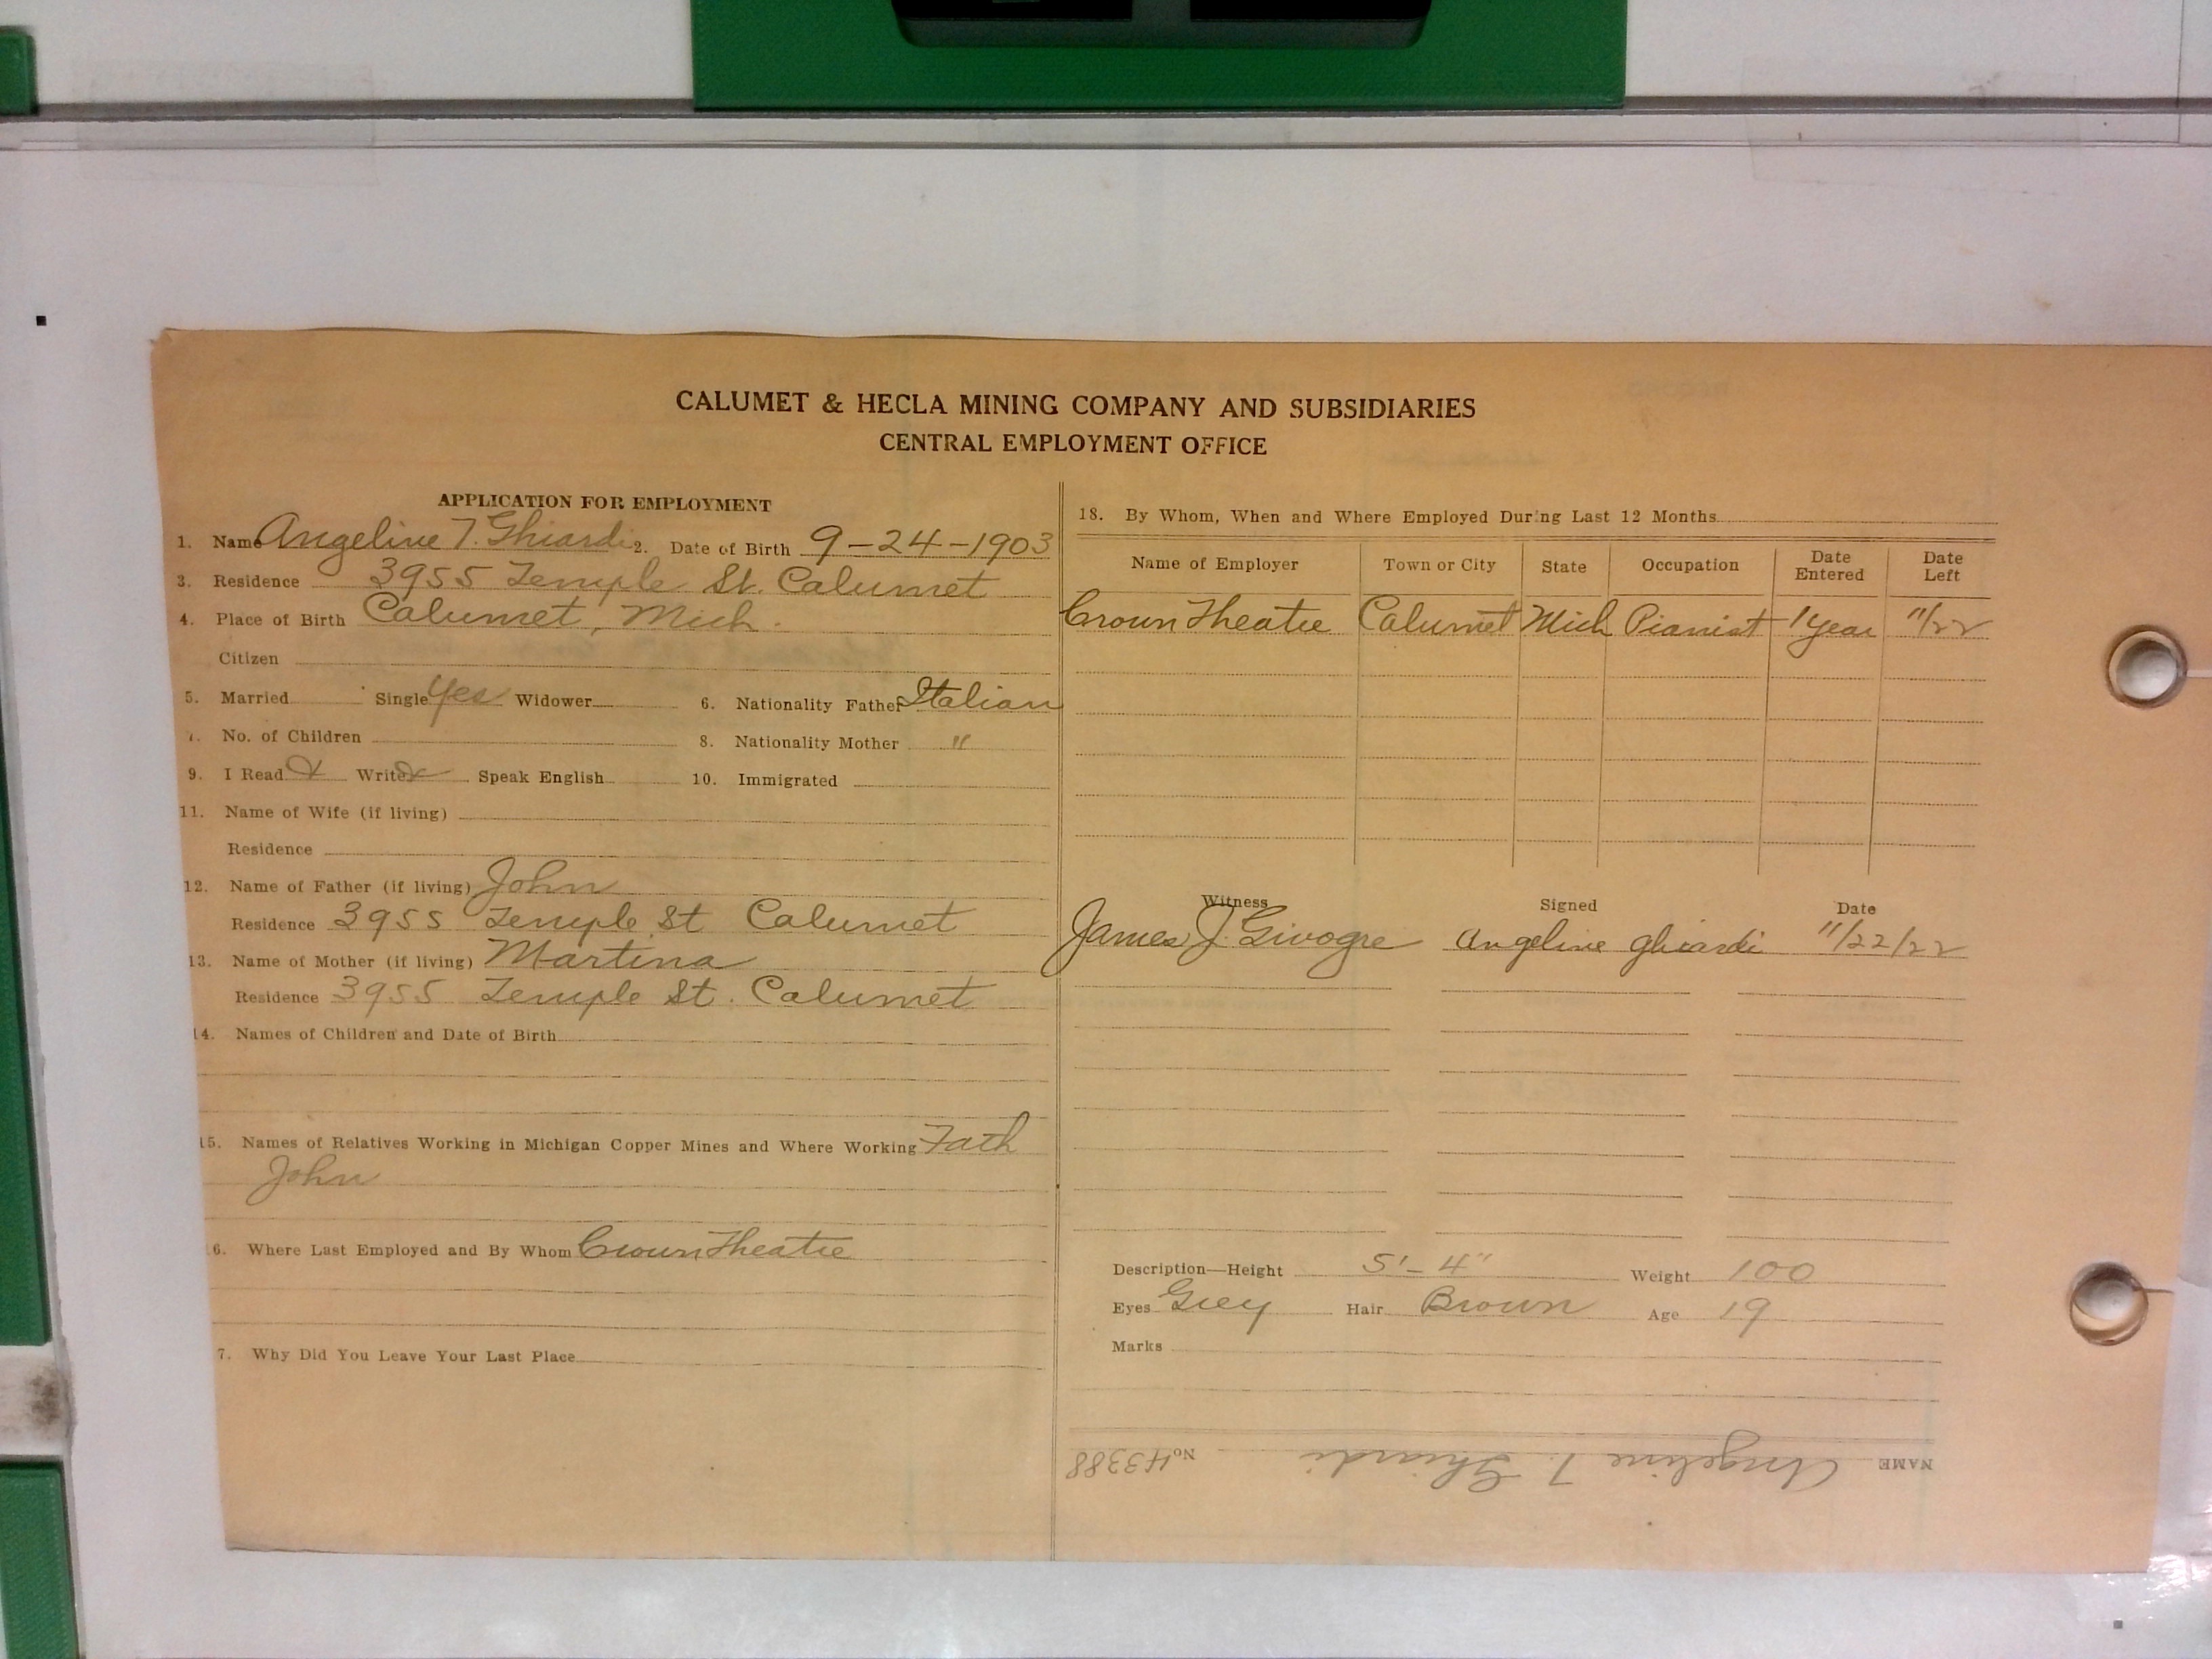 CALUMET & HECLA MINING COMPANY AND SUBSIDIARIES
CENTRAL EMPLOYMENT OFFICE
APPLICATION FOR EMPLOYMENT
1. Name Angeline T. Ghiardi 2. Date of Birth 9-24-1903
3. Residence 3955 Temple St. Calumet
4. Place of Birth Calumet, Mich.
Citizen
5. Married Single Yes Widower 6. Nationality Father Italian
7. No. of Children 8. Nationality Mother "
9. I Read x Write x Speak English 10. Immigrated
11. Name of Wife (if living)
Residence
12. Name of Father (if living) John
Residence 3955 Temple St Calumet
13. Name of Mother (if living) Martina
Residence 3955 Temple St. Calumet
14. Names of Children and Date of Birth
15. Names of Relatives Working in Michigan Copper Mines and Where Working Fath
John
6. Where Last Employed and By Whom Crown Theatre
7. Why Did You Leave Your Last Place
18. By Whom, When and Where Employed During Last 12 Months
Name of Employer Town or City State Occupation Date Entered Date Left
Crown Theatre Calumet Mich Pianist 1 year 11/22
Witness Signed Date
James J. Givogre Angeline Ghiardi 11/22/22
Description—Height 5'-4" Weight 100
Eyes Grey Hair Brown Age 19
Marks
NAME Angeline T. Ghiardi No. 43388